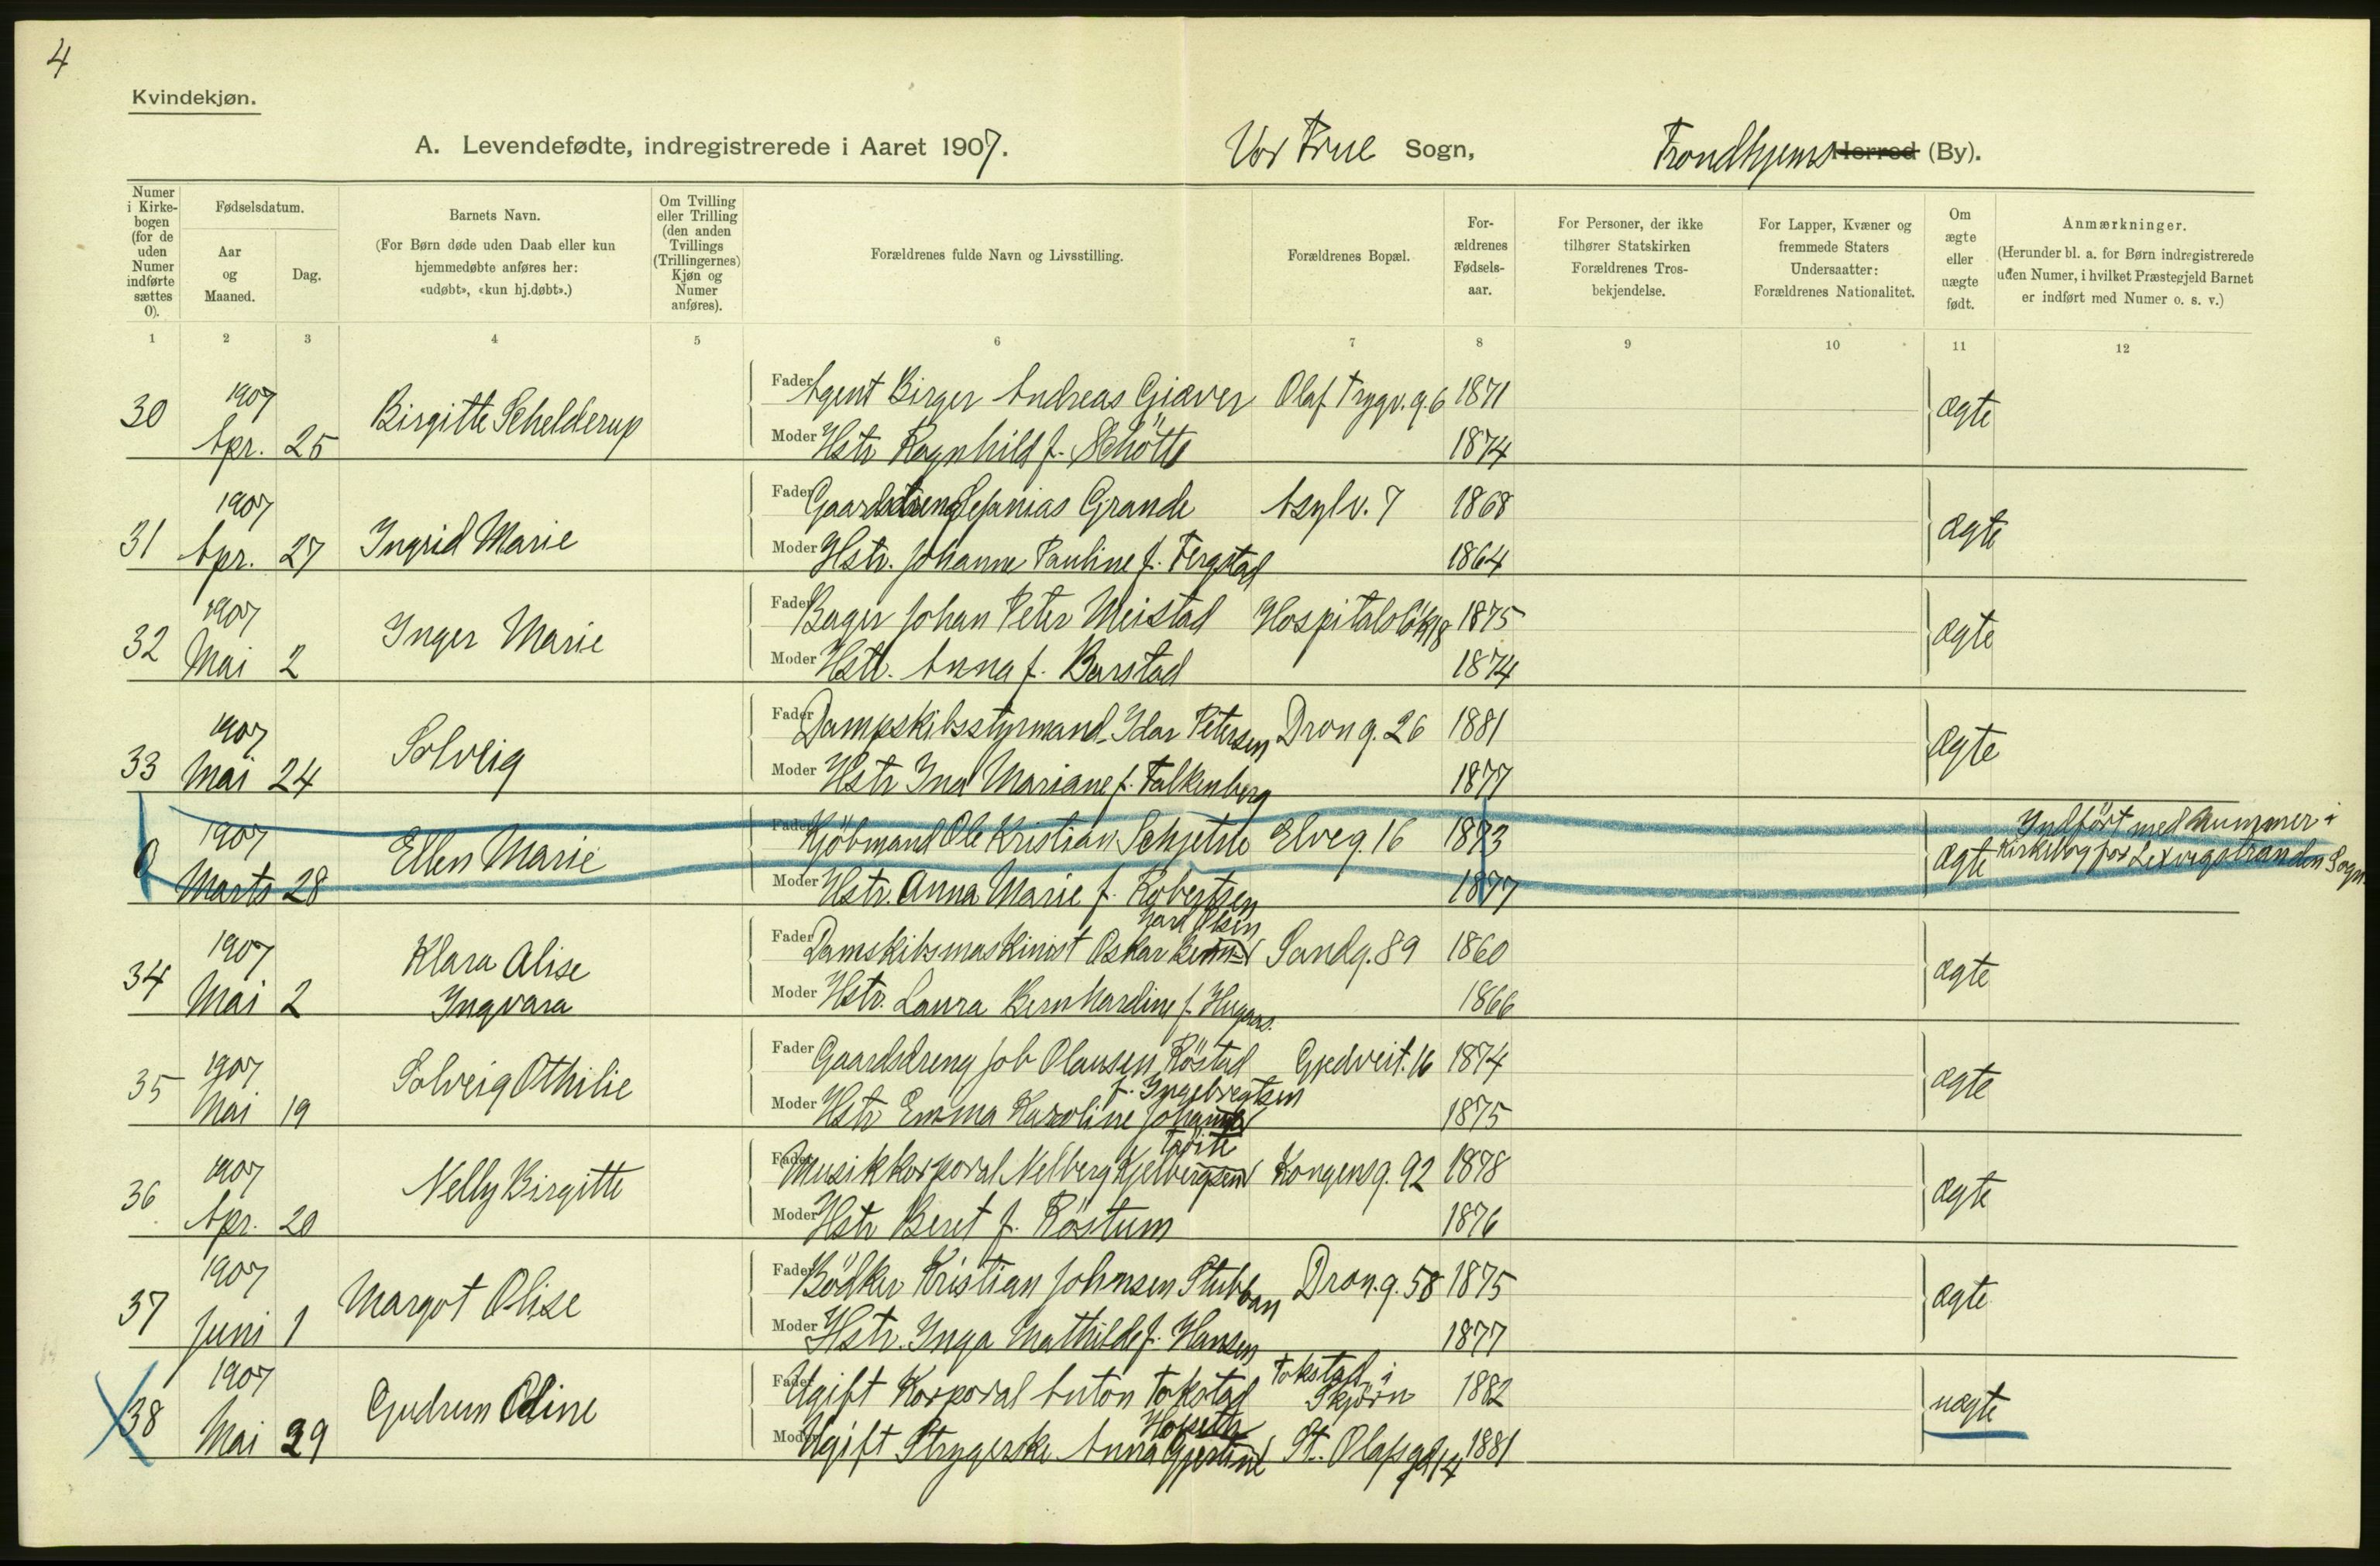 4
Kvindekjøn.
A. Levendefødte, indregistrerede i Aaret 1907. Vor Frue Sogn, Trondhjems Herred (By).
Numer i Kirkebogen (for de uden Numer indførte sættes 0).
Fødselsdatum.
Aar og Maaned.
Dag.
Barnets Navn.
(For Børn døde uden Daab eller kun hjemmedøbte anføres her: «udøbt», «kun hj.døbt».)
Om Tvilling eller Trilling (den anden Tvillings (Trillingernes) Kjøn og Numer anføres).
Forældrenes fulde Navn og Livsstilling.
Forældrenes Bopæl.
Forældrenes Fødselsaar.
For Personer, der ikke tilhører Statskirken Forældrenes Trosbekjendelse.
For Lapper, Kvæner og fremmede Staters Undersaatter: Forældrenes Nationalitet.
Om ægte eller uægte født.
Anmærkninger.
(Herunder bl. a. for Børn indregistrerede uden Numer, i hvilket Præstegjeld Barnet er indført med Numer o. s. v.)
1 2 3 4 5 6 7 8 9 10 11 12
30 1907 Apr. 25 Birgitte Schelderup
Fader Agent Birger Andreas Giæver Olaf Trygv. g. 6 1871 ægte
Moder Hstr Ragnhild f. Schøtts 1874
31 1907 Apr. 27 Ingrid Marie
Fader Gaardsdreng Sefanias Grande Asylv. 7 1868 ægte
Moder Hstr. Johanne Pauline f. Fergstad 1864
32 1907 Mai 2 Inger Marie
Fader Bager Johan Peter Meistad Hospitalsløk 18 1875 ægte
Moder Hstr. Anna f. Barstad 1874
33 1907 Mai 24 Solveig
Fader Dampskibsstyrmand Idar Petersen Dron g. 26 1881 ægte
Moder Hstr Ina Mariane f. Falkenberg 1877
0 1907 Marts 28 Ellen Marie
Fader Kjøbmand Ole Kristian Schjetne Elveg. 16 1873 ægte
Moder Hstr. Anna Marie f. Robertsen 1877
Indført med Nummer i
Kirkebog for Lexvigstranden Sogn.
34 1907 Mai 2 Klara Alise Ingvara
hard Olsen
Fader Damskibsmaskinist Oskar Bern Sandg. 89 1860 ægte
Moder Hstr. Laura Bernhardine f. Hugaas. 1866
35 1907 Mai 19 Solveig Othilie
Fader Gaardsdreng Job Olausen Røstad Gjedveit. 16 1874 ægte
f. Ingebregtsen
Moder Hstr Emma Karoline Johanne 1875
36 1907 Apr. 20 Nelly Birgitte
Fader Musikkorporal Nelberg Kjelbergsen Kongensg. 92 1878 ægte
Moder Hstr Beret f. Røstum 1876
37 1907 Juni 1 Margot Olise
Fader Bødker Kristian Johnsen Stubban Dron. g. 58 1875 ægte
Moder Hstr. Inga Mathilde f. Hansen 1877
38 1907 Mai 29 Gudrun Oline
Tokstad i
Fader Ugift Korporal Anton Tokstad Skjørn 1882 uægte
Moder Ugift Strygerske Anna Gjertine St. Olafs gd 14 1881